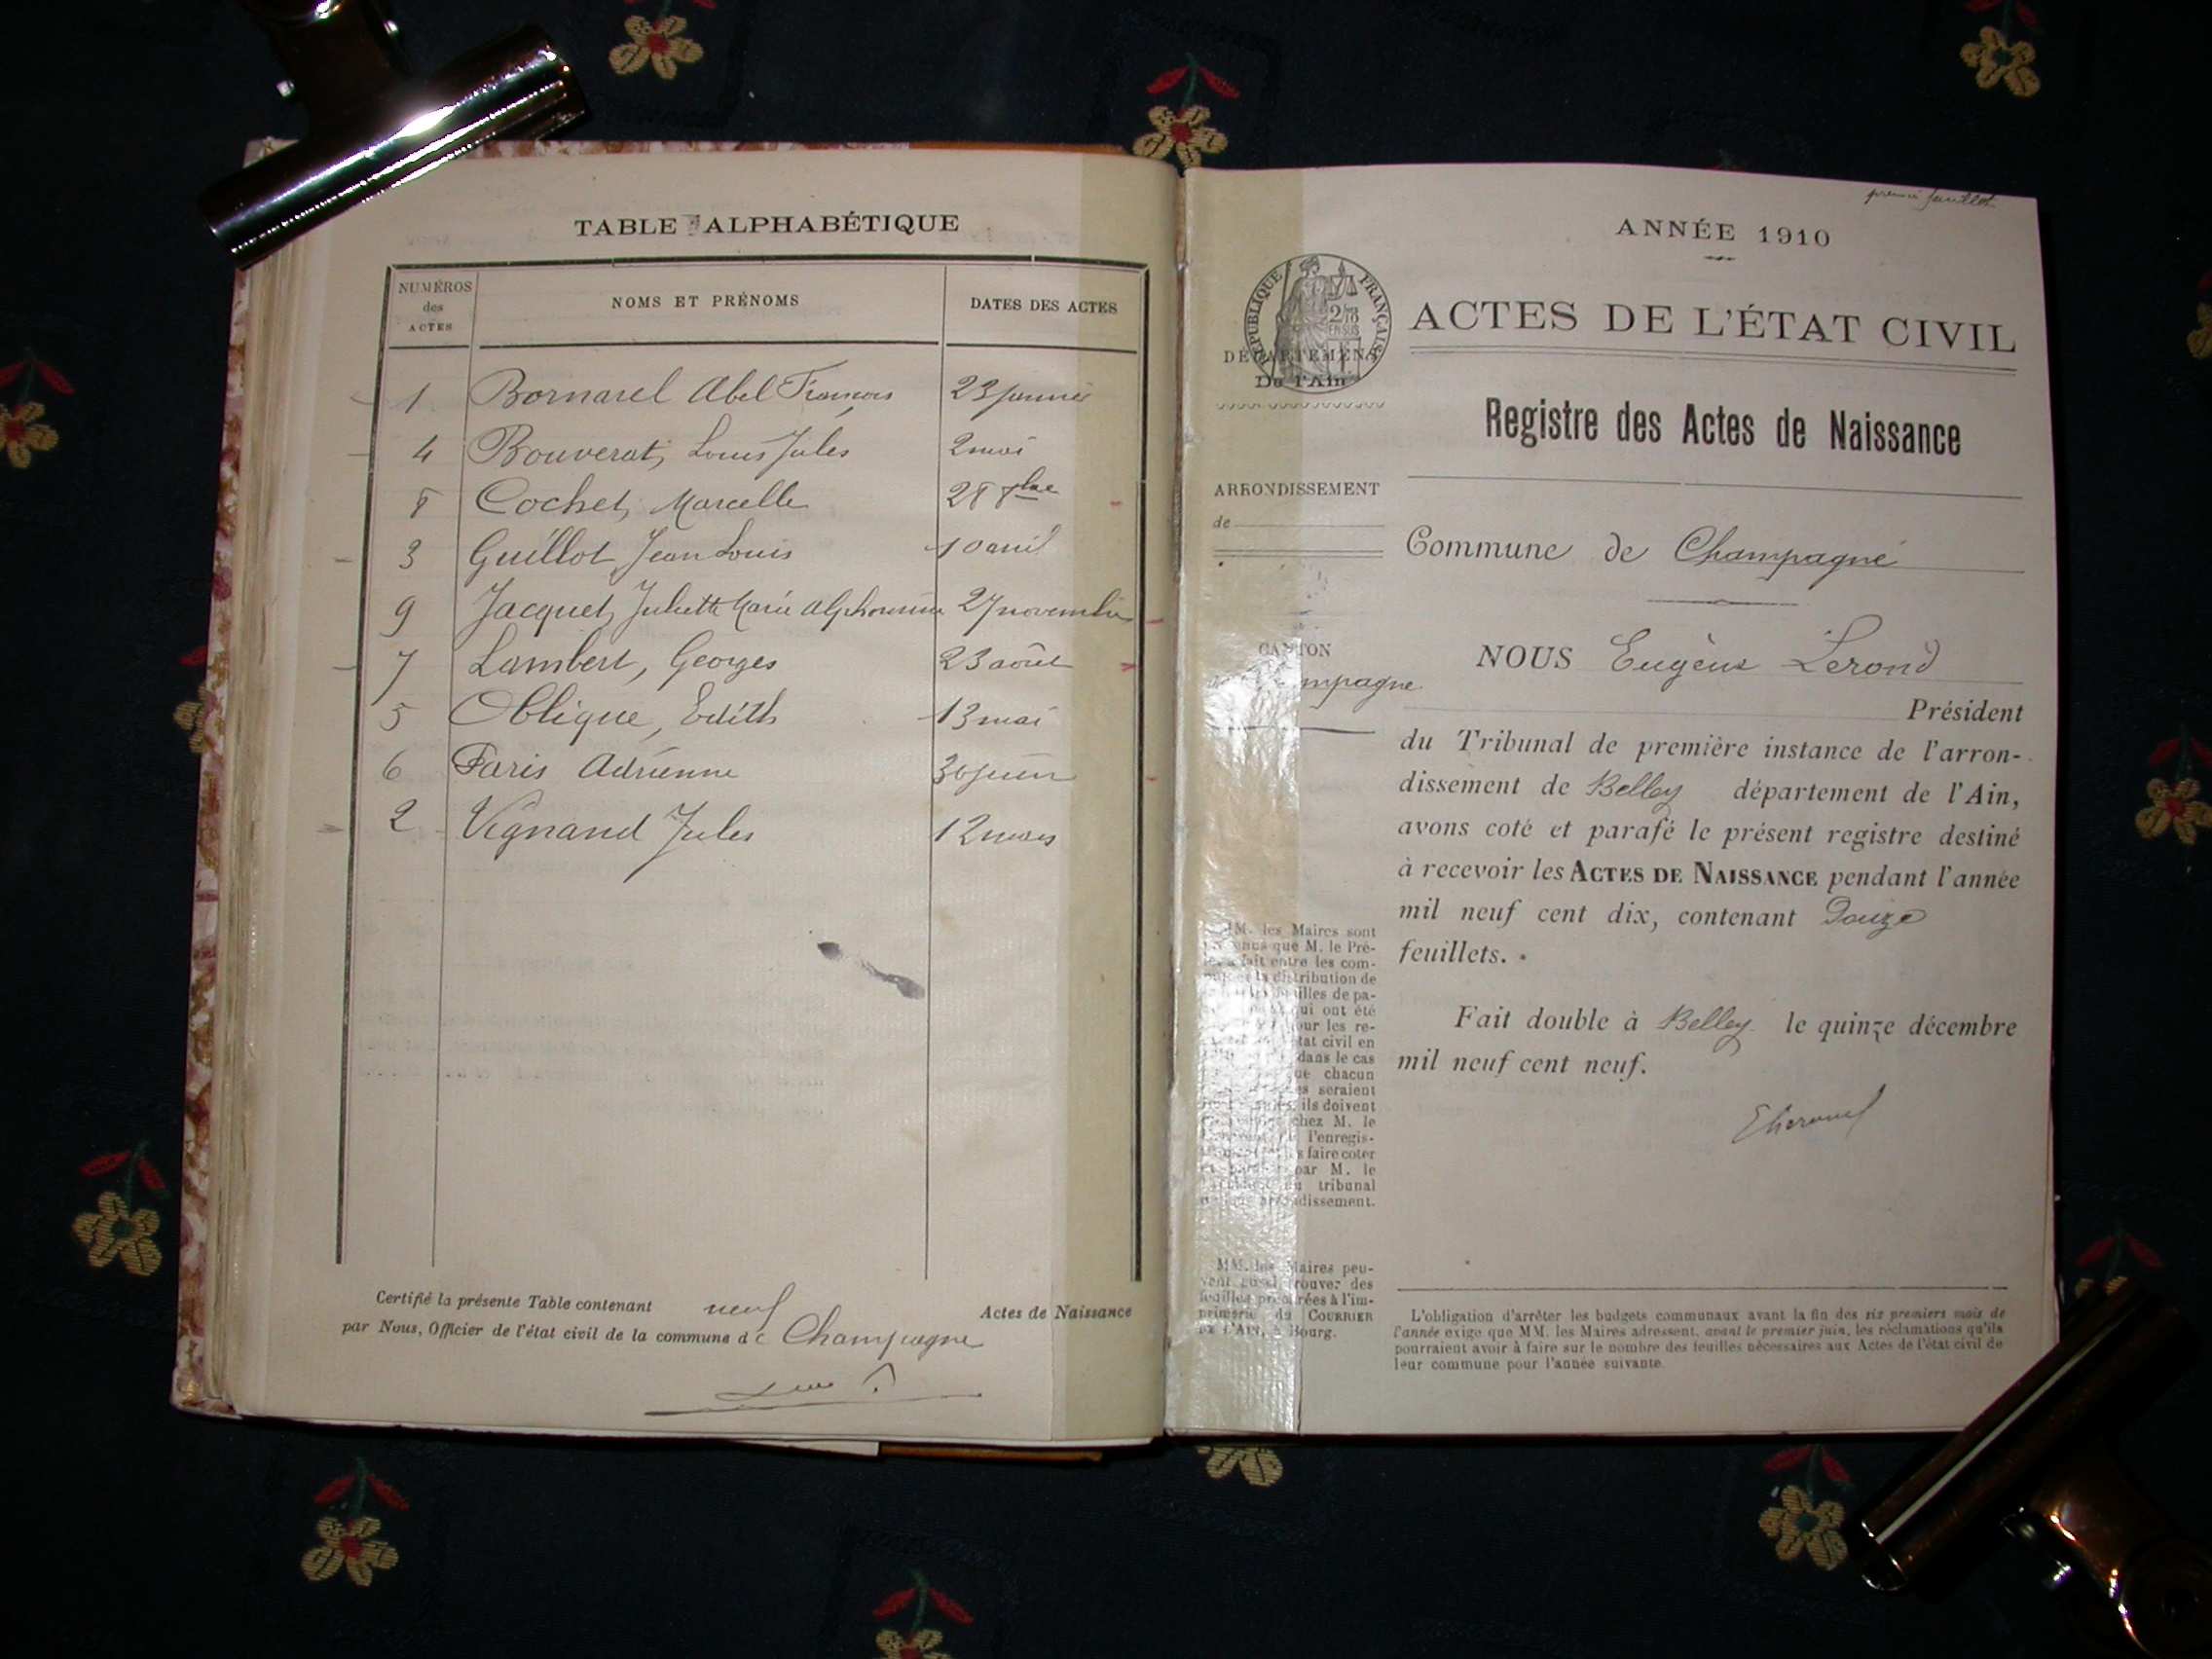 TABLE ALPHABÉTIQUE
NUMÉROS des ACTES NOMS ET PRÉNOMS DATES DES ACTES
1 Bornarel Abel François 23 janvier
4 Bouverat, Louis Jules 2 mai
8 Cochet, Marcelle 28 7bre
3 Guillot Jean Louis 10 avril
9 Jacquet, Juliette Marie Alphonsine 27 novembre
7 Lambert, Georges 23 août
5 Oblique, Edith 13 mai
6 Paris Adrienne 30 juin
2 Vignand Jules 12 mars
Certifié la présente Table contenant neuf Actes de Naissance
par Nous, Officier de l'état civil de la commune de Champagne
premier feuillet
ANNÉE 1910
RÉPUBLIQUE FRANÇAISE
2/10
EN SUS
DÉPARTEMENT
De l'Ain
ACTES DE L'ÉTAT CIVIL
Registre des Actes de Naissance
ARRONDISSEMENT
de
Commune de Champagne
CANTON
mpagne
NOUS Eugène Lerond
Président
du Tribunal de première instance de l'arron-
dissement de Belley département de l'Ain,
avons coté et parafé le présent registre destiné
à recevoir les ACTES DE NAISSANCE pendant l'année
mil neuf cent dix, contenant Douze
feuillets.
Fait double à Belley le quinze décembre
mil neuf cent neuf.
MM. les Maires sont
que M. le Pré-
fait entre les com-
la distribution de
feuilles de pa-
qui ont été
pour les re-
état civil en
dans le cas
que chacun
seraient
ils doivent
chez M. le
l'enregis-
faire coter
par M. le
tribunal
dissement.
MM. les Maires peu-
vent aussi trouver des
feuilles préparées à l'im-
primerie du COURRIER
DE L'AIN, à Bourg.
L'obligation d'arrêter les budgets communaux avant la fin des six premiers mois de
l'année exige que MM. les Maires adressent, avant le premier juin, les réclamations qu'ils
pourraient avoir à faire sur le nombre des feuilles nécessaires aux Actes de l'état civil de
leur commune pour l'année suivante.